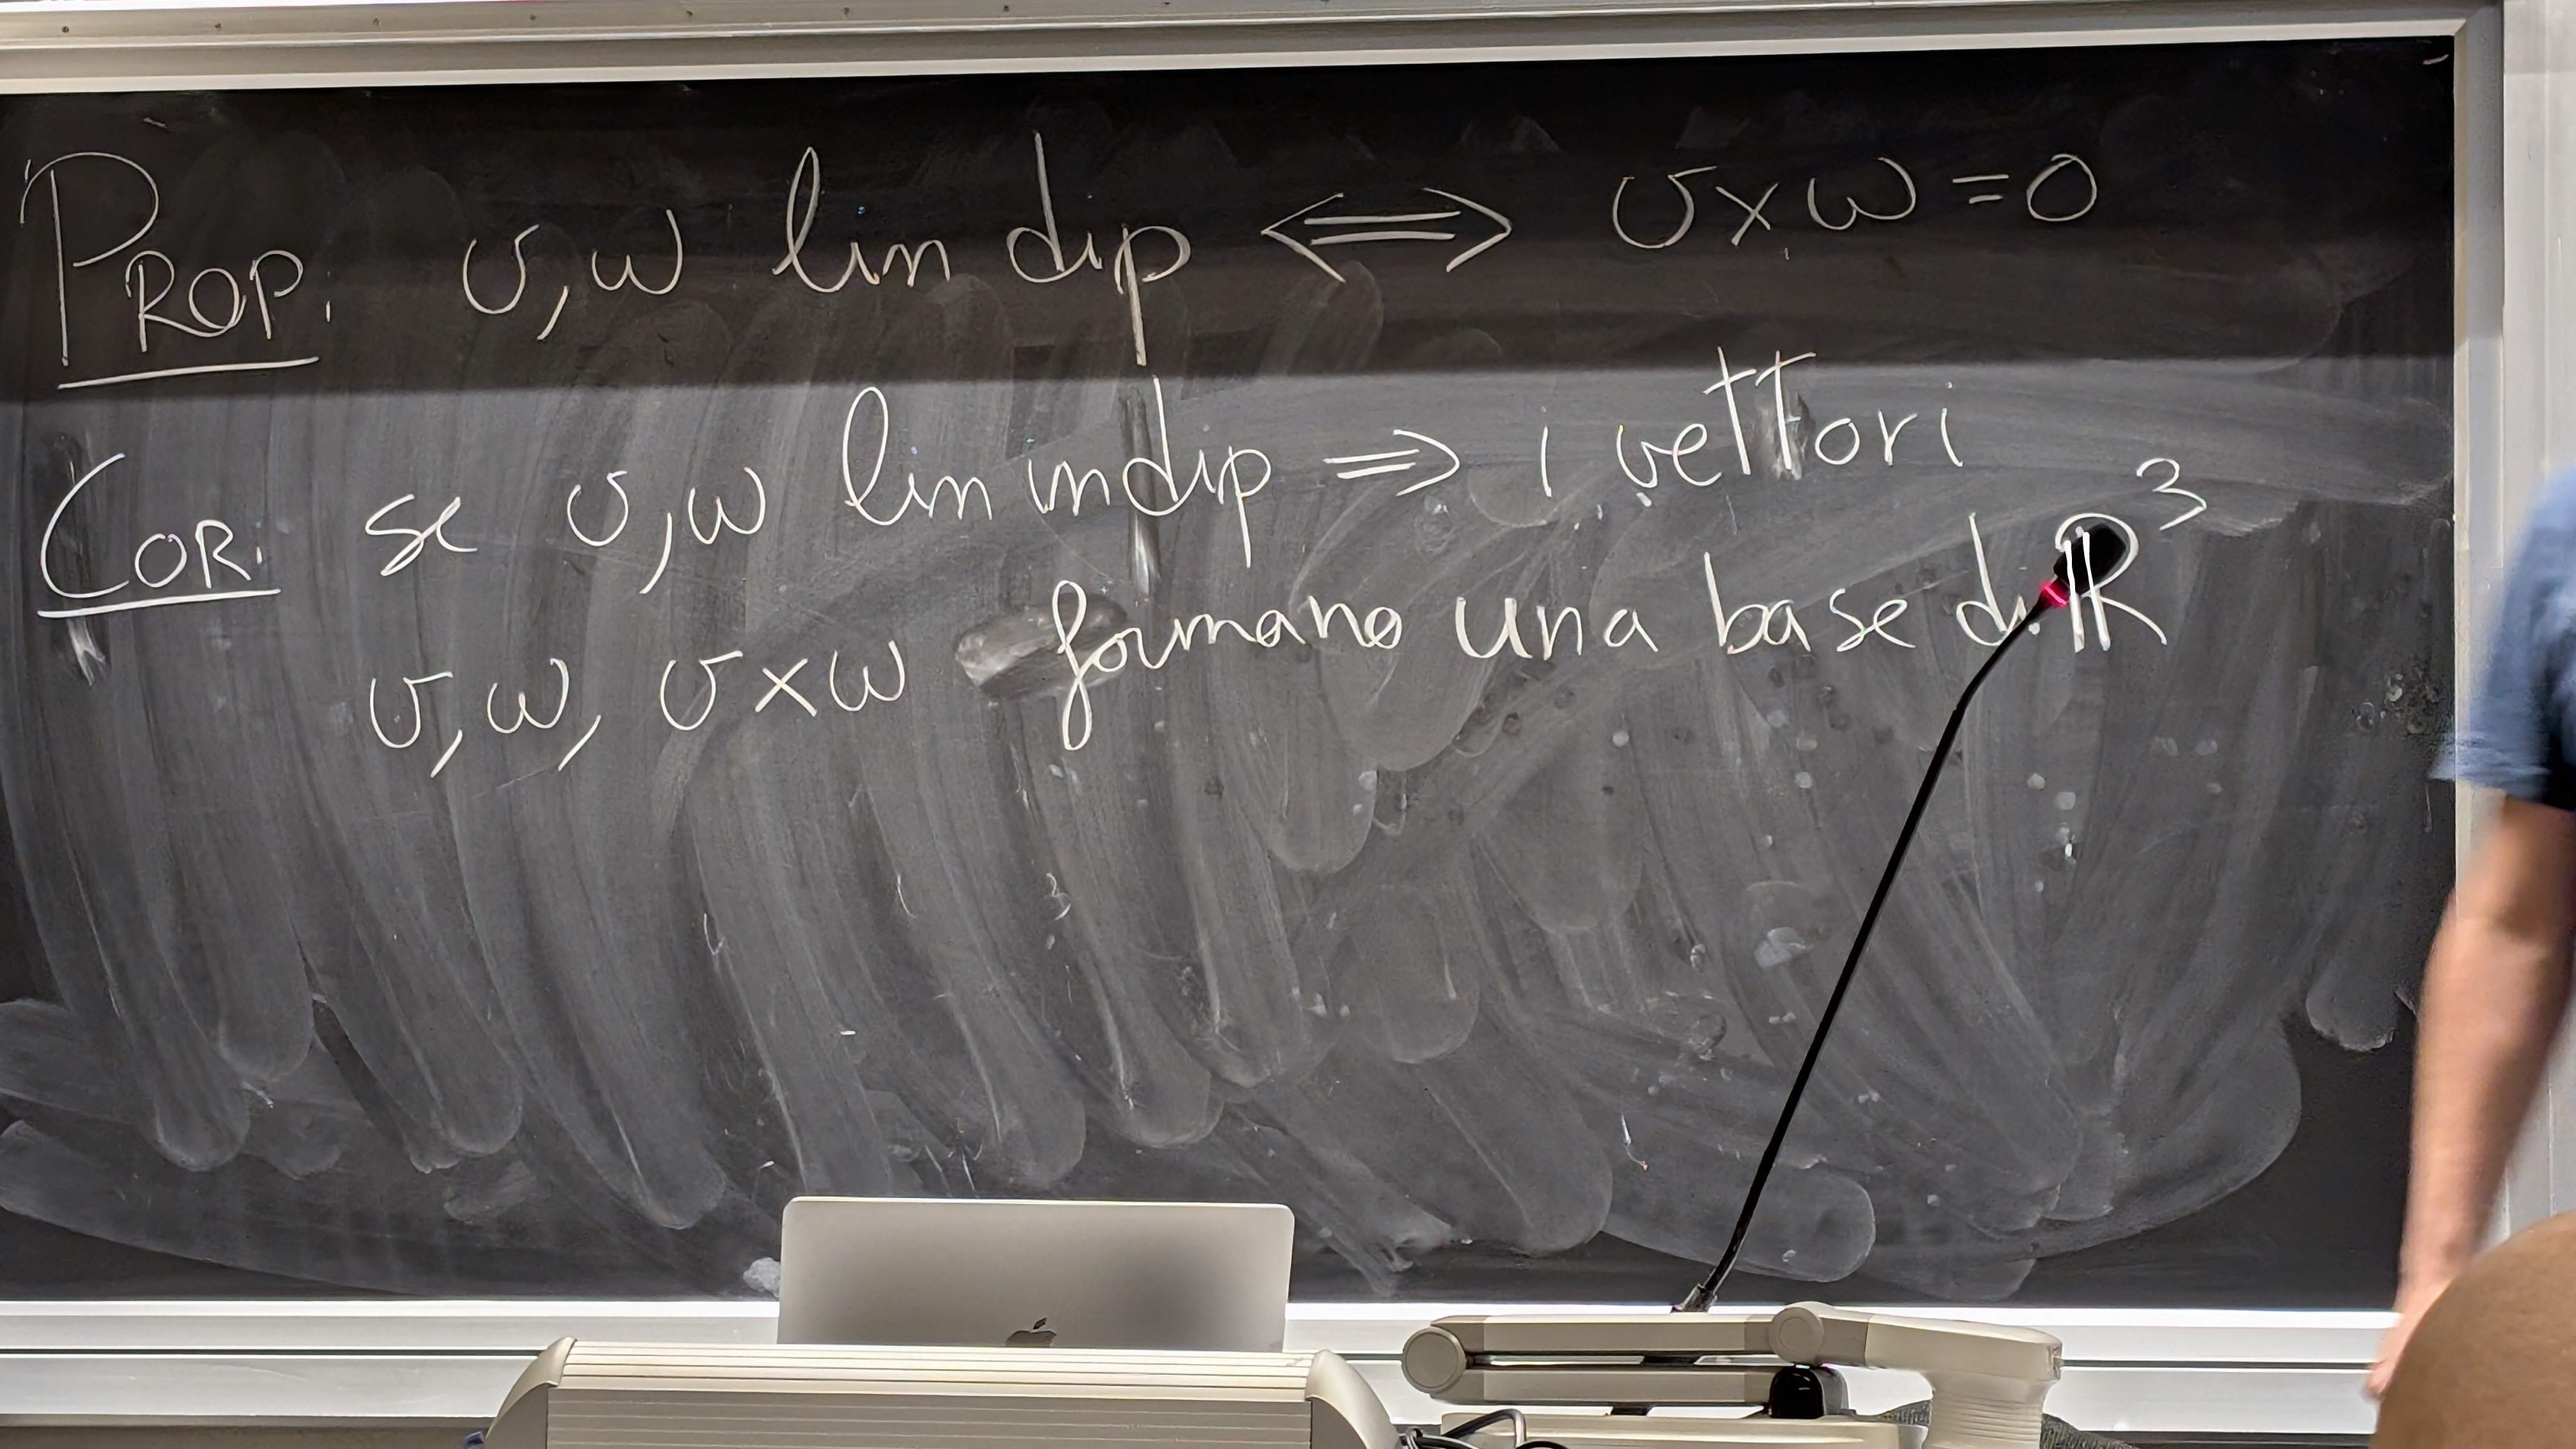 PROP. v,w lin dip ⟺ v×w=0
COR. se v,w lin indip ⟹ i vettori
v,w, v×w formano una base di ℝ³